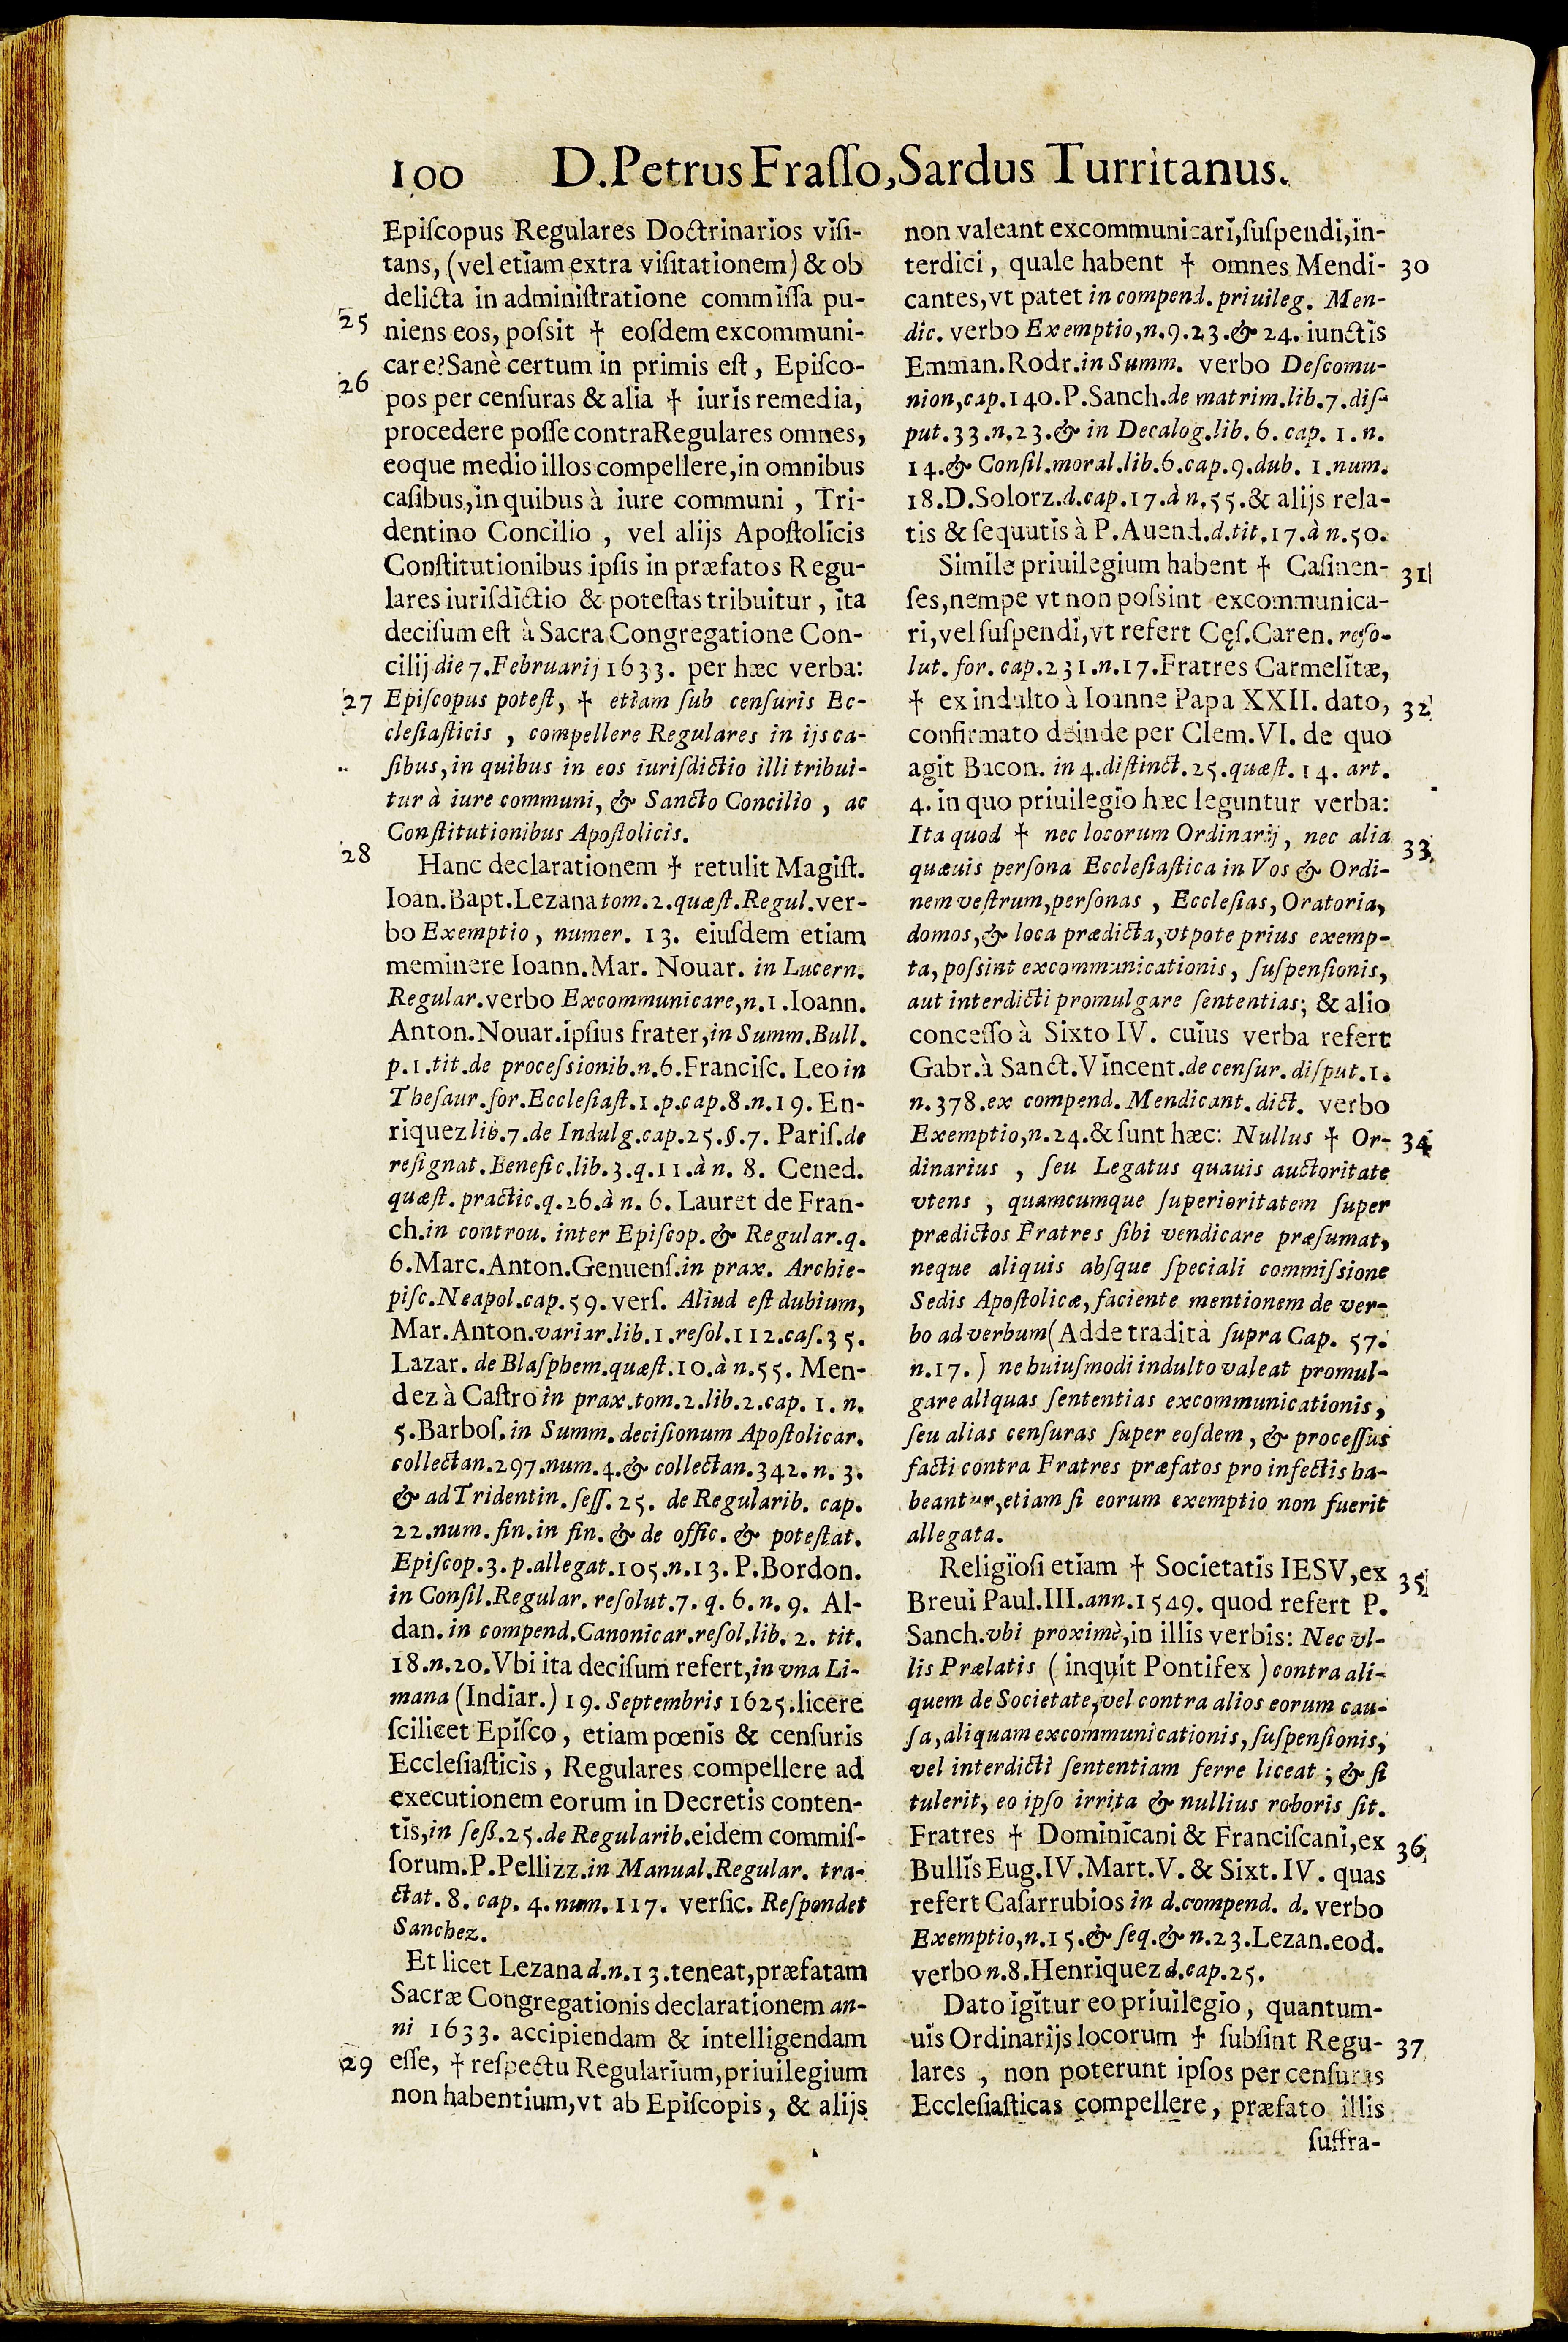 100 D. Petrus Frasso, Sardus Turritanus.
Episcopus Regulares Doctrinarios visi-
tans, (vel etiam extra visitationem) & ob
delicta in administratione commissa pu-
25 niens eos, possit † eosdem excommuni-
care? Sanè certum in primis est, Episco-
26 pos per censuras & alia † iuris remedia,
procedere posse contra Regulares omnes,
eoque medio illos compellere, in omnibus
casibus, in quibus à iure communi, Tri-
dentino Concilio, vel alijs Apostolicis
Constitutionibus ipsis in præfatos Regu-
lares iurisdictio & potestas tribuitur, ita
decisum est à Sacra Congregatione Con-
cilij die 7. Februarij 1633. per hæc verba:
27 Episcopus potest, † etiam sub censuris Ec-
clesiasticis, compellere Regulares in ijs ca-
sibus, in quibus in eos iurisdictio illi tribui-
tur à iure communi, & Sancto Concilio, ac
Constitutionibus Apostolicis.
28 Hanc declarationem † retulit Magist.
Ioan. Bapt. Lezana tom. 2. quæst. Regul. ver-
bo Exemptio, numer. 13. eiusdem etiam
meminere Ioann. Mar. Nouar. in Lucern.
Regular. verbo Excommunicare, n. 1. Ioann.
Anton. Nouar. ipsius frater, in Summ. Bull.
p. 1. tit. de processionib. n. 6. Francisc. Leo in
Thesaur. for. Ecclesiast. 1. p. cap. 8. n. 19. En-
riquez lib. 7. de Indulg. cap. 25. §. 7. Paris. de
resignat. Benefic. lib. 3. q. 11. à n. 8. Cened.
quæst. practic. q. 26. à n. 6. Lauret de Fran-
ch. in controu. inter Episcop. & Regular. q.
6. Marc. Anton. Genuens. in prax. Archie-
pisc. Neapol. cap. 59. vers. Aliud est dubium,
Mar. Anton. variar. lib. 1. resol. 112. cas. 35.
Lazar. de Blasphem. quæst. 10. à n. 55. Men-
dez à Castro in prax. tom. 2. lib. 2. cap. 1. n.
5. Barbos. in Summ. decisionum Apostolicar.
collectan. 297. num. 4. & collectan. 342. n. 3.
& ad Tridentin. sess. 25. de Regularib. cap.
22. num. fin. in fin. & de offic. & potestat.
Episcop. 3. p. allegat. 105. n. 13. P. Bordon.
in Consil. Regular. resolut. 7. q. 6. n. 9. Al-
dan. in compend. Canonicar. resol. lib. 2. tit.
18. n. 20. Vbi ita decisum refert, in vna Li-
mana (Indiar.) 19. Septembris 1625. licere
scilicet Episco, etiam pœnis & censuris
Ecclesiasticis, Regulares compellere ad
executionem eorum in Decretis conten-
tis, in seß. 25. de Regularib. eidem commis-
sorum. P. Pellizz. in Manual. Regular. tra-
ctat. 8. cap. 4. num. 117. versic. Respondet
Sanchez.
Et licet Lezana d. n. 13. teneat, præfatam
Sacræ Congregationis declarationem an-
ni 1633. accipiendam & intelligendam
29 esse, † respectu Regularium, priuilegium
non habentium, vt ab Episcopis, & alijs
non valeant excommunicari, suspendi, in-
terdici, quale habent † omnes Mendi- 30
cantes, vt patet in compend. priuileg. Men-
dic. verbo Exemptio, n. 9. 23. & 24. iunctis
Emman. Rodr. in Summ. verbo Descomu-
nion, cap. 140. P. Sanch. de matrim. lib. 7. dis-
put. 33. n. 23. & in Decalog. lib. 6. cap. 1. n.
14. & Consil. moral. lib. 6. cap. 9. dub. 1. num.
18. D. Solorz. d. cap. 17. à n. 55. & alijs rela-
tis & sequutis à P. Auend. d. tit. 17. à n. 50.
Simile priuilegium habent † Casinen- 31
ses, nempe vt non possint excommunica-
ri, vel suspendi, vt refert Cęs. Caren. reso-
lut. for. cap. 231. n. 17. Fratres Carmelitæ,
† ex indulto à Ioanne Papa XXII. dato, 32
confirmato deinde per Clem. VI. de quo
agit Bacon. in 4. distinct. 25. quæst. 14. art.
4. in quo priuilegio hæc leguntur verba:
Ita quod † nec locorum Ordinarij, nec alia 33
quæuis persona Ecclesiastica in Vos & Ordi-
nem vestrum, personas, Ecclesias, Oratoria,
domos, & loca prædicta, vtpote prius exemp-
ta, possint excommunicationis, suspensionis,
aut interdicti promulgare sententias; & alio
concesso à Sixto IV. cuius verba refert
Gabr. à Sanct. Vincent. de censur. disput. 1.
n. 378. ex compend. Mendicant. dict. verbo
Exemptio, n. 24. & sunt hæc: Nullus † Or- 34
dinarius, seu Legatus quauis auctoritate
vtens, quamcumque superioritatem super
prædictos Fratres sibi vendicare præsumat,
neque aliquis absque speciali commissione
Sedis Apostolicæ, faciente mentionem de ver-
bo ad verbum (Adde tradita supra Cap. 57.
n. 17.) ne huiusmodi indulto valeat promul-
gare aliquas sententias excommunicationis,
seu alias censuras super eosdem, & processus
facti contra Fratres præfatos pro infectis ha-
beantur, etiam si eorum exemptio non fuerit
allegata.
Religiosi etiam † Societatis IESV, ex 35
Breui Paul. III. ann. 1549. quod refert P.
Sanch. vbi proximè, in illis verbis: Nec vl-
lis Prælatis (inquit Pontifex) contra ali-
quem de Societate, vel contra alios eorum cau-
sa, aliquam excommunicationis, suspensionis,
vel interdicti sententiam ferre liceat; & si
tulerit, eo ipso irrita & nullius roboris sit.
Fratres † Dominicani & Franciscani, ex 36
Bullis Eug. IV. Mart. V. & Sixt. IV. quas
refert Casarrubios in d. compend. d. verbo
Exemptio, n. 15. & seq. & n. 23. Lezan. eod.
verbo n. 8. Henriquez d. cap. 25.
Dato igitur eo priuilegio, quantum-
uis Ordinarijs locorum † subsint Regu- 37
lares, non poterunt ipsos per censuras
Ecclesiasticas compellere, præfato illis
suffra-